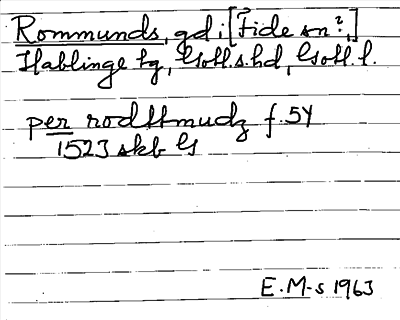 Rommunds, gd i [Fide sn?]
Hablinge tg, Gotl. s. hd, Gotl. l.
per rodstmudz f. 54
1523 skb G
E. M-s 1963